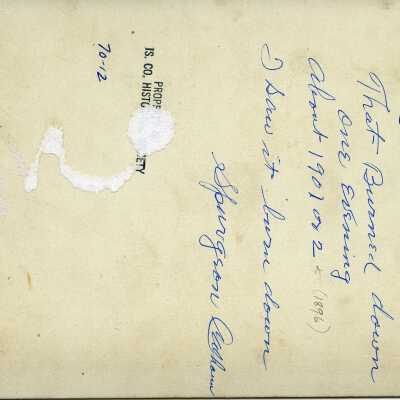 That Burned down
one Evening
About 1901 or 2 - (1896)
I saw it burn down
Spurgeon Oldham
PROPE
IS. CO. HISTO
ETY
70-12